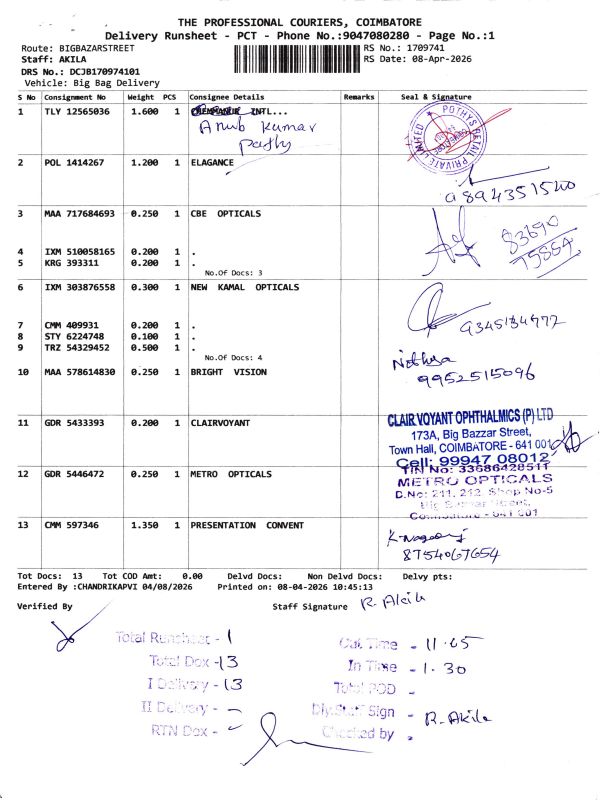 THE PROFESSIONAL COURIERS, COIMBATORE
Delivery Runsheet - PCT - Phone No.:9047080280 - Page No.:1
Route: BIGBAZARSTREET RS No.: 1709741
Staff: AKILA RS Date: 08-Apr-2026
DRS No.: DCJB170974101
Vehicle: Big Bag Delivery
S No Consignment No Weight PCS Consignee Details Remarks Seal & Signature
1 TLY 12565036 1.600 1 INTL...
Anub Kumar
POTHYS RETAIL PRIVATE LIMITED
2 POL 1414267 1.200 1 ELAGANCE
9894351540
3 MAA 717684693 0.250 1 CBE OPTICALS
83690
75884
4 IXM 510058165 0.200 1 .
5 KRG 393311 0.200 1 .
No.Of Docs: 3
6 IXM 303876558 0.300 1 NEW KAMAL OPTICALS
7 CMM 409931 0.200 1 .
8 STY 6224748 0.100 1 .
9 TRZ 54329452 0.500 1 .
No.Of Docs: 4
Nithya
10 MAA 578614830 0.250 1 BRIGHT VISION
9952515096
11 GDR 5433393 0.200 1 CLAIRVOYANT
CLAIR VOYANT OPHTHALMICS (P) LTD
173A, Big Bazzar Street,
Town Hall, COIMBATORE - 641 001
Cell: 99947 08012
TIN No: 33686428511
12 GDR 5446472 0.250 1 METRO OPTICALS
METRO OPTICALS
D.No: 211, 212, Shop No-5
Big Bazaar Street,
Coimbatore - 641 001
13 CMM 597346 1.350 1 PRESENTATION CONVENT
K. Nagaraj
8754067654
Tot Docs: 13 Tot COD Amt: 0.00 Delvd Docs: Non Delvd Docs: Delvy pts:
Entered By :CHANDRIKAPVI 04/08/2026 Printed on: 08-04-2026 10:45:13
Verified By Staff Signature R. Akila
Total Runsheet - 1 Out Time - 11.05
Total Dox - 13 In Time - 1.30
I Delivery - 13 Total POD -
II Delivery - Dly.Staff Sign - R. Akila
RTN Dox - Checked by -